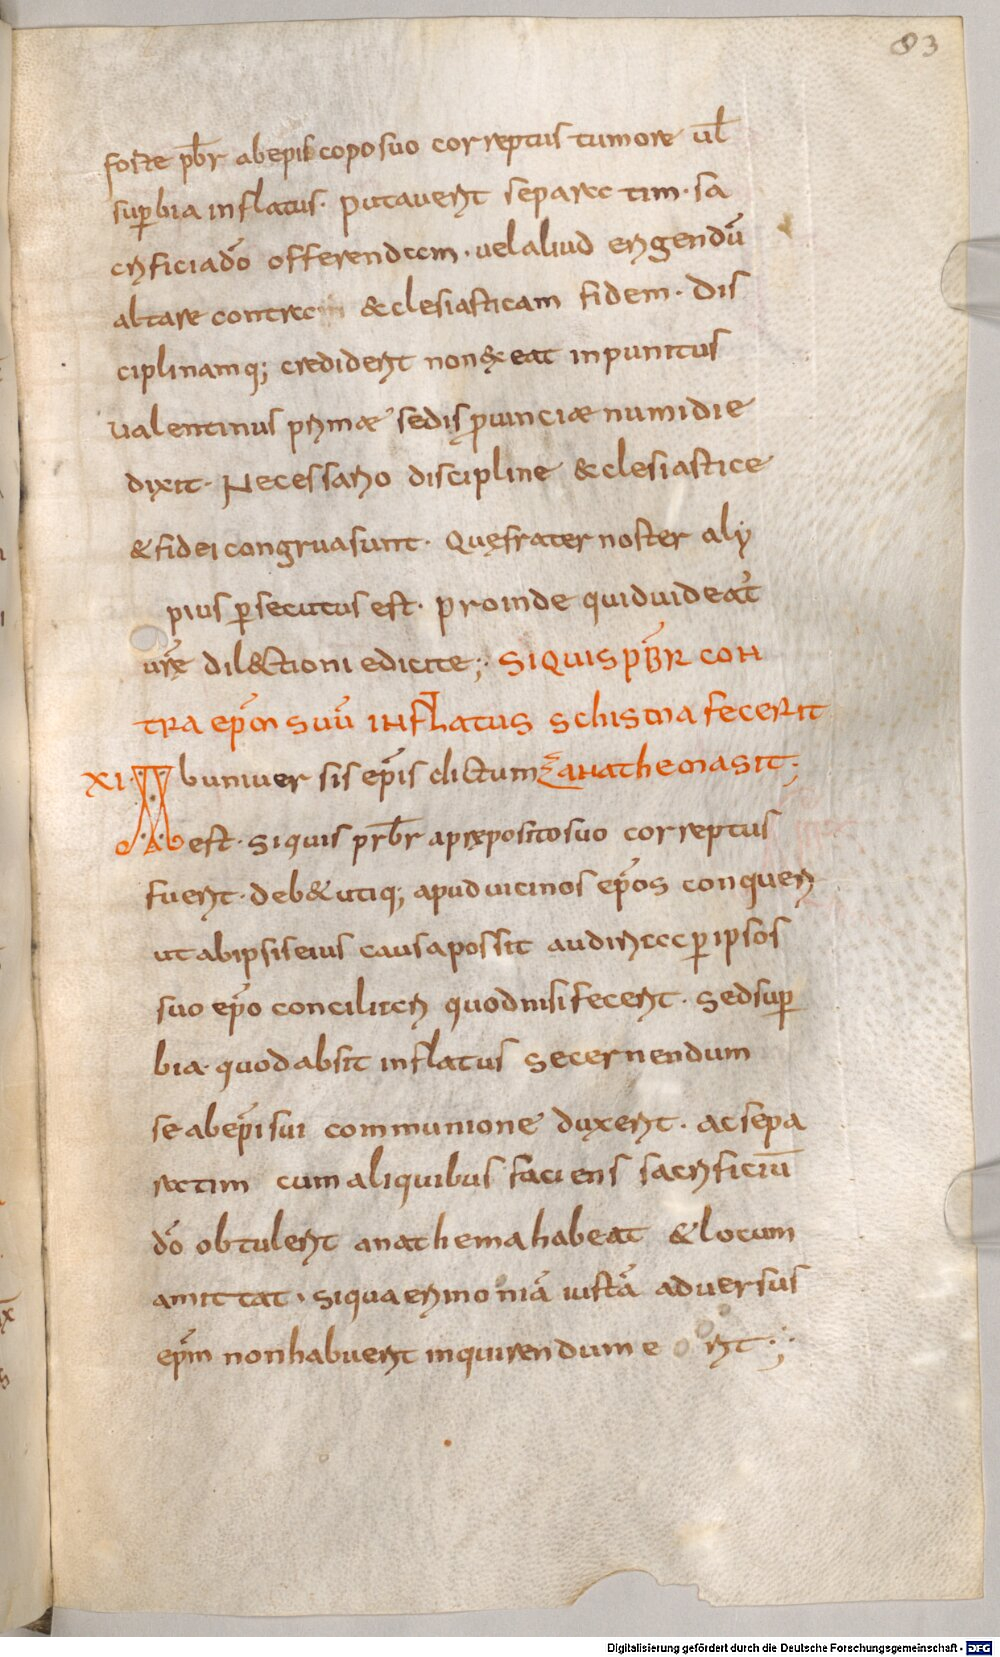 83
forte pbr̄ abepiscoposuo correptus tumore ul̄
suꝑbia inflatus · putauerit separatim · sa
crificiadō offerendam · uelaliud erigendū
altare contra &clesiasticam fidem · dis
ciplinamq; crediderit nonexeat inpunitus
ualentinus primæ sedis ꝓuinciæ numidie
dixit · Necessario discipline &clesiastice
&fidei congruasunt · Quęfrater noster aly
pius ꝑsecutus est · proinde quiduideat̄
urę̄ dil&ctioni edicite ; SIQUIS PBR̄ CON
TRA EPM̄ SUŪ INFLATUS SCHISMA FECERIT
XI Abuniuersis epīs dictum ANATHEMASIT;
est · Siquis prbr̄ aprępositosuo correptus
fuerit · deb&utiq; apuduicinos epōs conqueri
ut abipsis eius causapossit audiri acꝑipsos
suo epō conciliari quodnisi fecerit · Sedsuꝑ
bia · quodabsit inflatus secernendum
se abepī sui communione duxerit · acsepa
ratim cum aliquibus faciens sacrificiū
dō obtulerit anathema habeat &locum
amittat · siquaerimoniā iustā aduersus
epm̄ nonhabuerit inquirendum erit ;
Digitalisierung gefördert durch die Deutsche Forschungsgemeinschaft - DFG